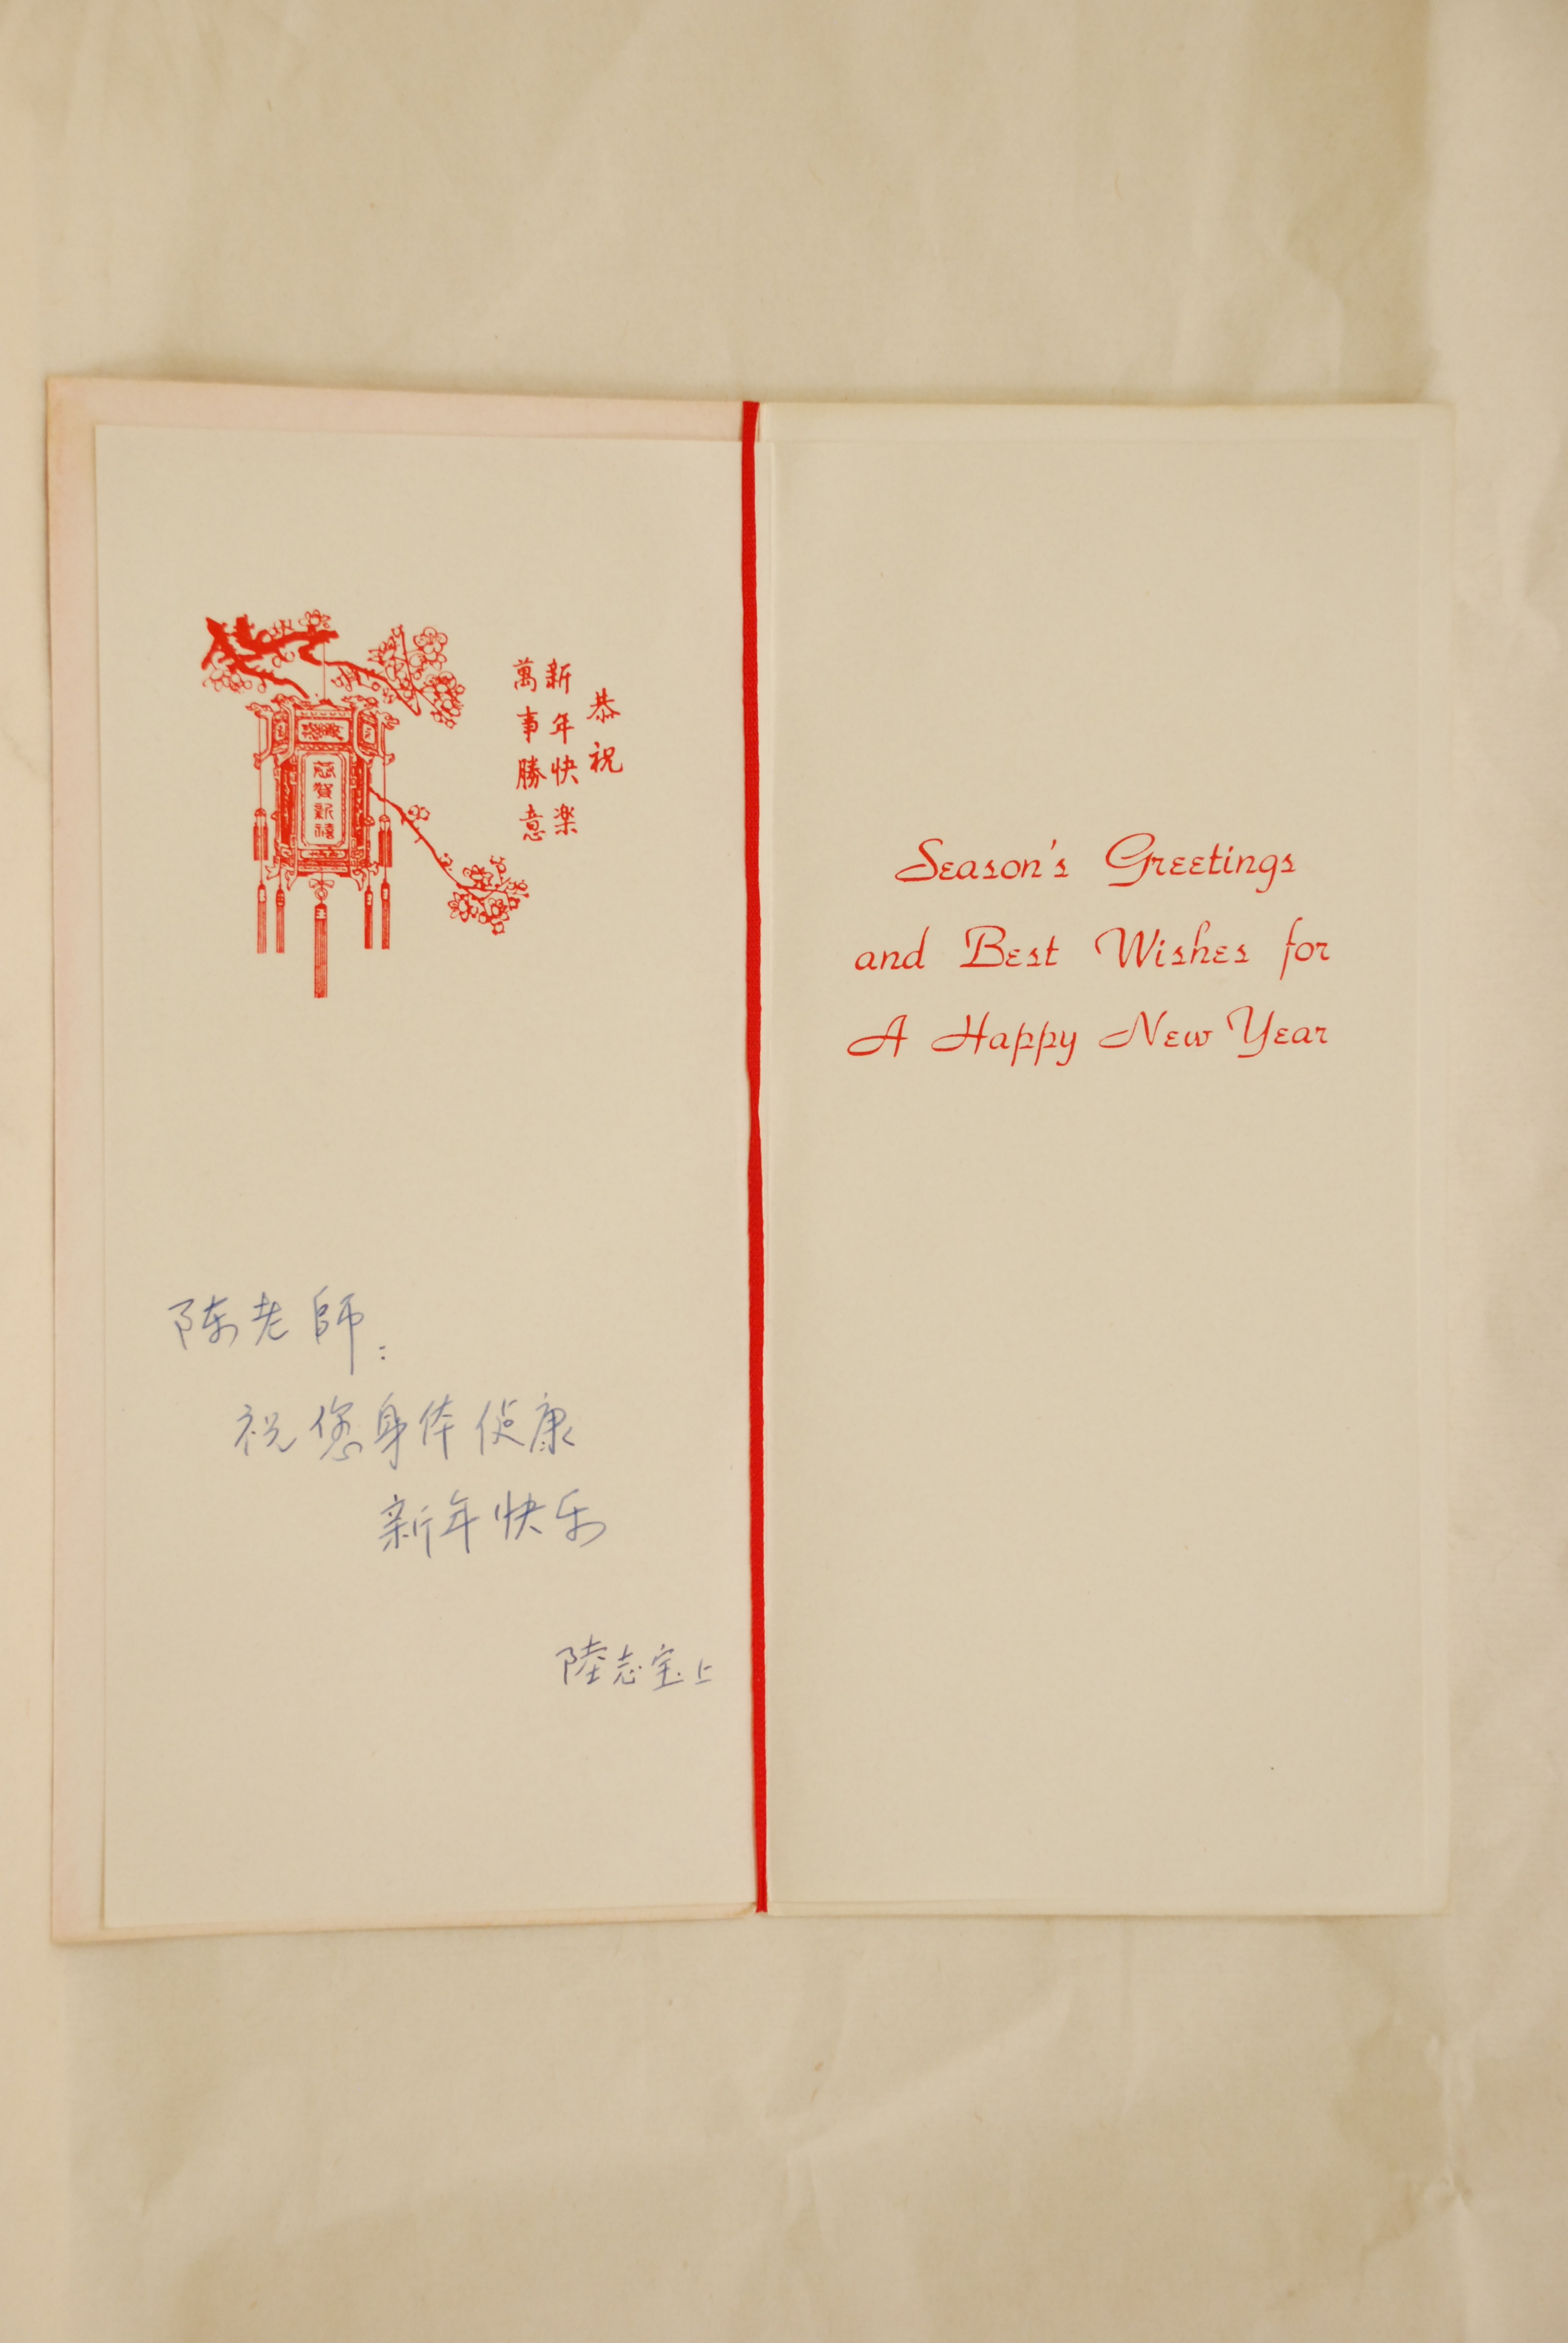 恭祝
新年快楽
萬事勝意
恭賀新禧
陈老師：
祝您身体健康
新年快乐
陸志宝上
Season's Greetings
and Best Wishes for
A Happy New Year